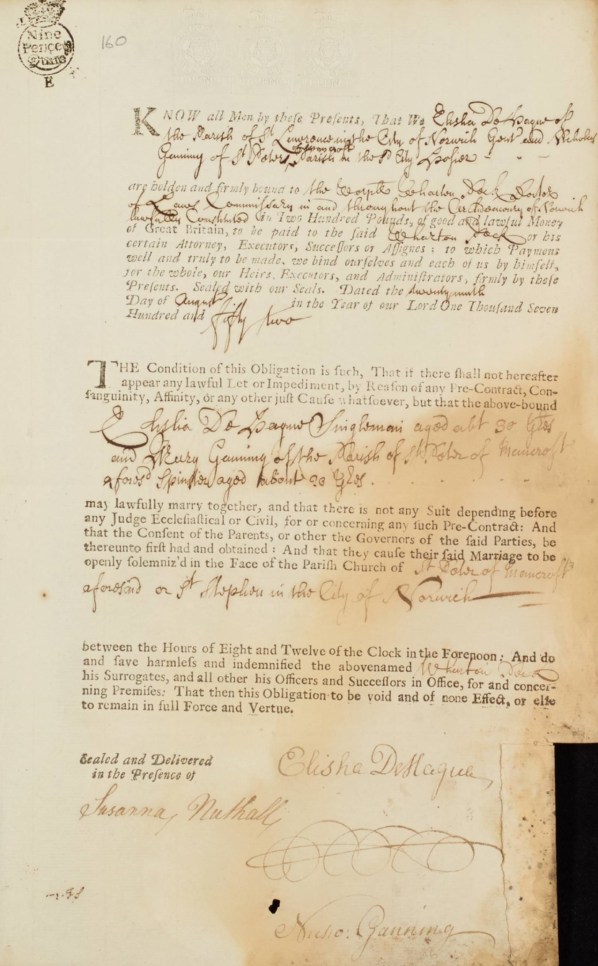 Nine
Pence
E
160
KNOW all Men by these Presents, That We Elisha De Hague of
the Parish of St Lawrence in the City of Norwich Gent and Nicholas
Ganning of St Peters Mancroft Parish in the sd City Hosier
are holden and firmly bound to the Worspll Wharton Peck Doctor
of Laws Commissary in and throughout the Archdeaconry of Norwich
lawfully Constituted In Two Hundred Pounds, of good and lawful Money
of Great Britain, to be paid to the said Wharton Peck or his
certain Attorney, Executors, Successors or Assigns; to which Payment
well and truly to be made, we bind ourselves and each of us by himself,
for the whole, our Heirs, Executors, and Administrators, firmly by these
Presents. Sealed with our Seals. Dated the twenty ninth
Day of August in the Year of our Lord One Thousand Seven
Hundred and fifty two
THE Condition of this Obligation is such, That if there shall not hereafter
appear any lawful Let or Impediment, by Reason of any Pre-Contract, Con-
sanguinity, Affinity, or any other just Cause whatsoever, but that the above-bound
Elisha De Hague Singleman aged abt 30 Yrs
and Mary Ganning of the Parish of St Peter of Mancroft
aforesd Spinster aged about 20 Yrs.
may lawfully marry together, and that there is not any Suit depending before
any Judge Ecclesiastical or Civil, for or concerning any such Pre-Contract: And
that the Consent of the Parents, or other the Governors of the said Parties, be
thereunto first had and obtained: And that they cause their said Marriage to be
openly solemniz'd in the Face of the Parish Church of St Peter of Mancroft
aforesaid or St Stephen in the City of Norwich
between the Hours of Eight and Twelve of the Clock in the Forenoon: And do
and save harmless and indemnified the abovenamed Wharton Peck
his Surrogates, and all other his Officers and Successors in Office, for and concer-
ning Premises: That then this Obligation to be void and of none Effect, or else
to remain in full Force and Vertue.
Sealed and Delivered
in the Presence of
Elisha DeHague
Susanna Nuthall
Nicho: Ganning